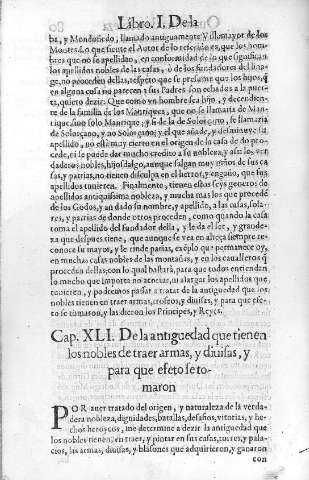 Libro. I. De la
ba, y Mondoñedo, llamado antiguamente Villamayor de los
Montes. Lo que siente el Autor de lo referido es, que los nom
bres que no se apellido, en conformidad de lo que significan
los apellidos nobles de las casas, ò de los fundadores del lina-
ge, no proceden dellas, respeto que se presume que los hijos, q̃
en alguna cosa no parecen a sus Padres son echados a la puer-
ta, quiero dezir: Que como vn hombre sea hijo, y decendien-
te de la familia de los Manriques, que no se llamaria de Man-
rique, sino solo Manrique, y si de la de Solorçano, se llamaria
de Solorçano, y no Solorçano; y el que añade, y desminuye su
apellido, no està muy cierto en el origen de la casa de do pro-
cede, ni se le puede dar mucho credito a su nobleza, y assi los ver
daderos nobles, hijosdalgo, aunque salgan muy niños de sus ca
sas, y patrias, no tienen disculpa en el hierro, y engaño, que sus
apellidos tuvieren. Finalmente, tienen estos seys generos de
apellidos antiquissima nobleza, y mucha mas los que proceden
de los Godos, y an dado su nombre, y apellido, a las casas, sola-
res, y patrias de donde otros proceden, como quando la casa
toma el apellido del fundador della, y le da el ser, y grande-
za que despues tiene, que aunque se vea en alteça siempre re-
conoce su mayor, y le rinde parias, exẽplo que permanece oy,
en muchas casas nobles de las montañas, y en los cavalleros q̃
proceden dellas; con lo qual bastarà, para que todos entiendan
lo mucho que importa no acortar, ni alargar los apellidos que
tuvieren, y podemos passar a tratar de la antiguedad que los
nobles tienen en traer armas, trofeos, y divisas, y para que efe-
to se tomaron, y las dieron los Principes, y Reyes.
Cap. XLI. De la antiguedad que tienen
los nobles de traer armas, y diuisas, y
para que efeto se to-
maron
POR auer tratado del origen, y naturaleza de la verda-
dera nobleza, dignidades, batallas, desafios, vitorias, y he-
chos heroycos, me determine a dezir la antiguedad que
los nobles tienen, en traer, y pintar en sus casas, torres, y pala-
cios, las armas, diuisas, y blasones que adquirieron, y ganaron
con